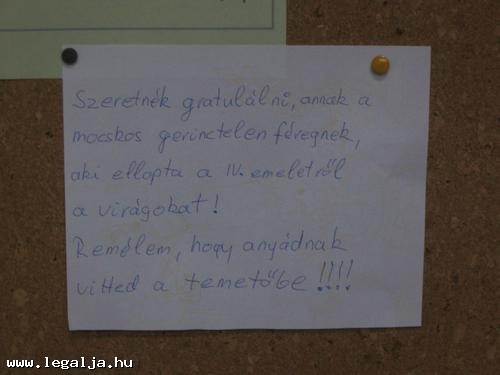 Szeretnék gratulálni, annak a
mocskos gerinctelen féregnek,
aki ellopta a IV. emeletről
a virágokat!
Remélem, hogy anyádnak
vitted a temetőbe !!!!
www.legalja.hu